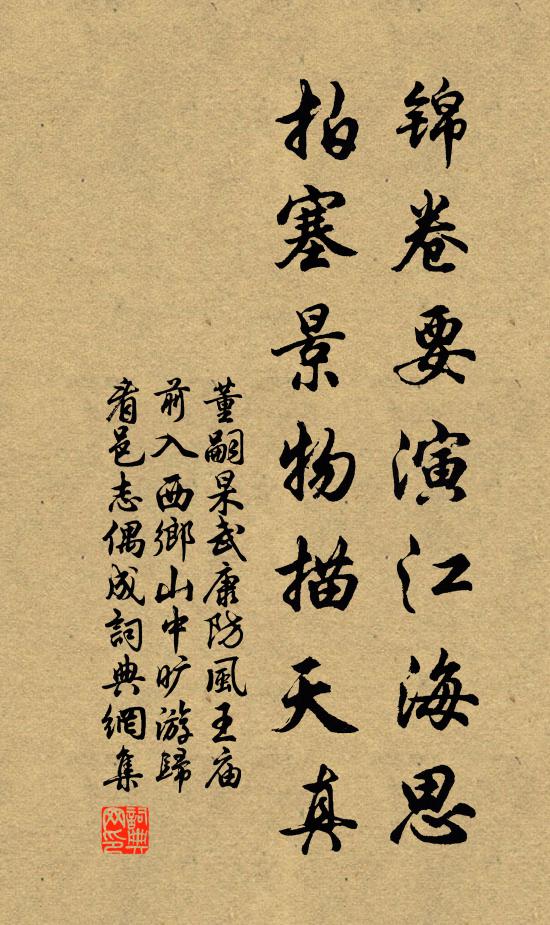 锦卷要演江海思
拍塞景物描天真
董嗣杲武康防風王庙
前入西鄉山中旷游歸
看邑志偶成詞典網集
詞典网印